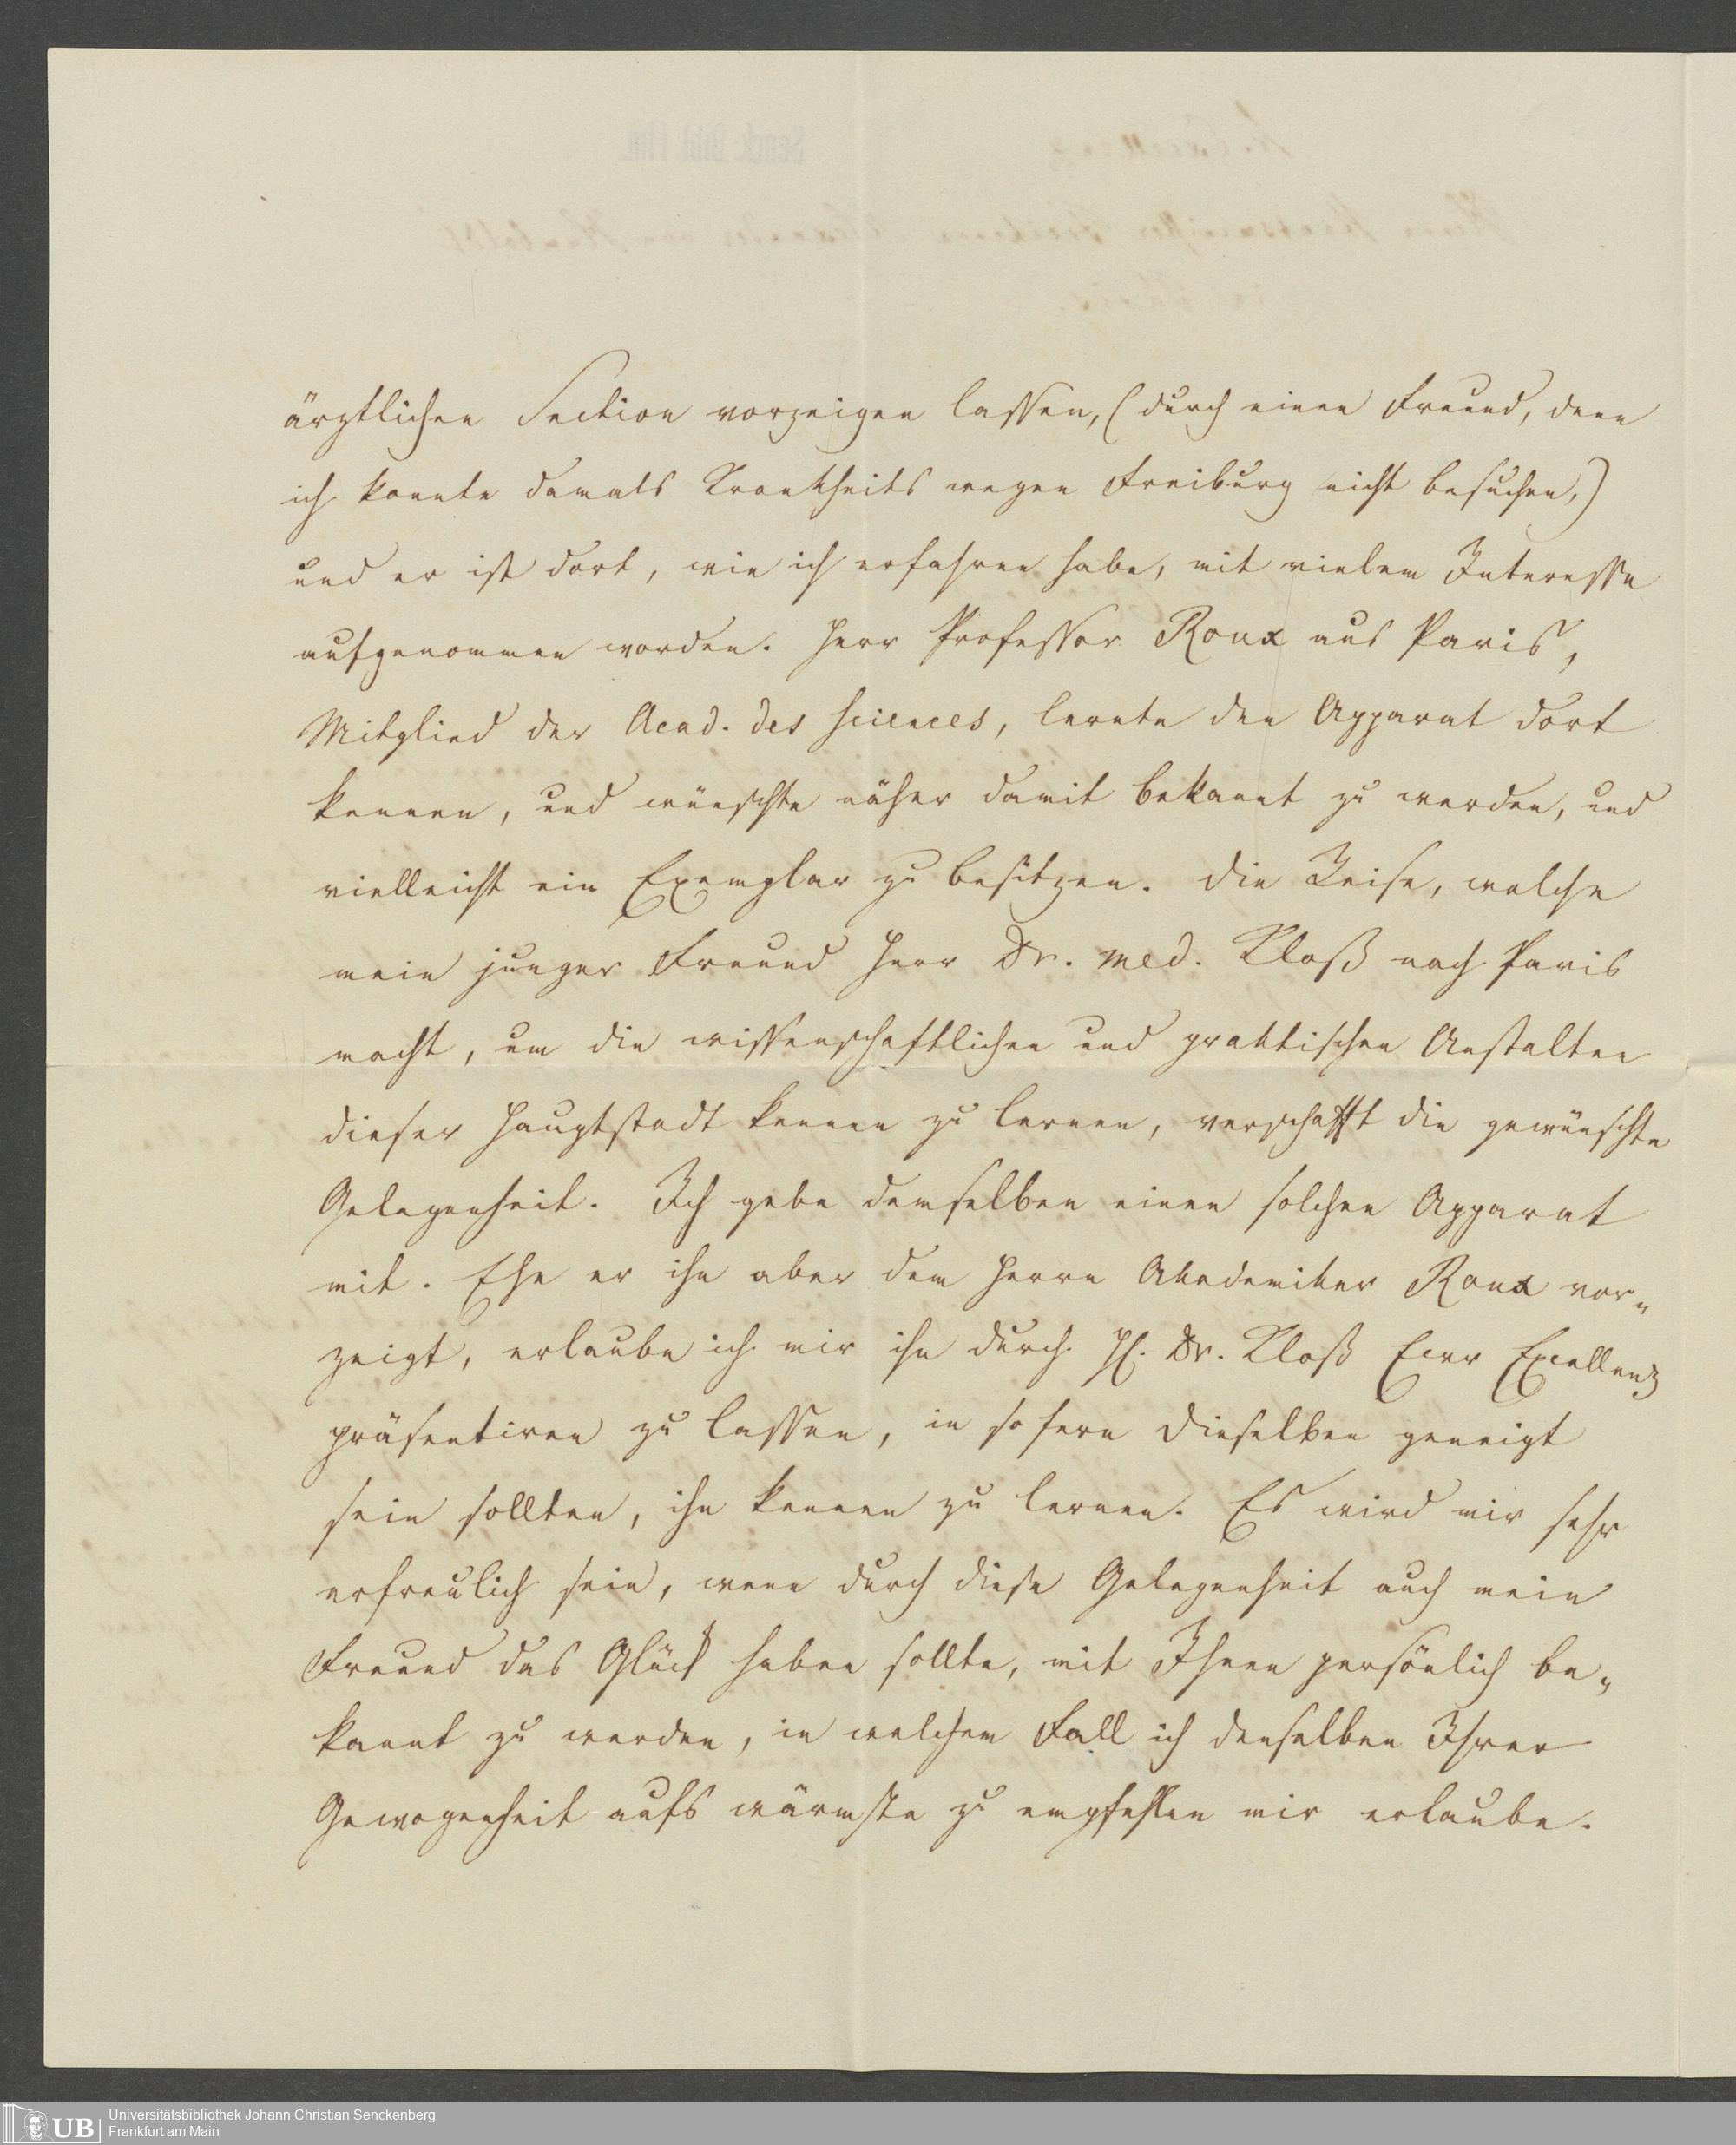 ärztlichen Section vorzeigen lassen, (durch einen Freund, denn
ich konnte damals Krankheits wegen Freiburg nicht besuchen,)
und er ist dort, wie ich erfahren habe, mit vielem Interesse
aufgenommen worden. Herr Professor Roux aus Paris,
Mitglied der Acad. des sciences, lernte den Apparat dort
kennen, und wünschte näher damit bekannt zu werden, und
vielleicht ein Exemplar zu besitzen. Die Reise, welche
mein junger Freund Herr Dr. med. Kloß nach Paris
macht, um die wissenschaftlichen und praktischen Anstalten
dieser Hauptstadt kennen zu lernen, verschafft die gewünschte
Gelegenheit. Ich gebe demselben einen solchen Apparat
mit. Ehe er ihn aber dem Herrn Akademiker Roux vor-
zeigt, erlaube ich mir ihn durch H. Dr. Kloß Euer Excellenz
präsentiren zu lassen, in so fern Dieselben geneigt
sein sollten, ihn kennen zu lernen. Es wird mir sehr
erfreulich sein, wenn durch diese Gelegenheit auch mein
Freund das Glück haben sollte, mit Ihnen persönlich be-
kannt zu werden, in welchem Fall ich denselben Ihrer
Gewogenheit aufs wärmste zu empfehlen mir erlaube.
UB
Universitätsbibliothek Johann Christian Senckenberg
Frankfurt am Main